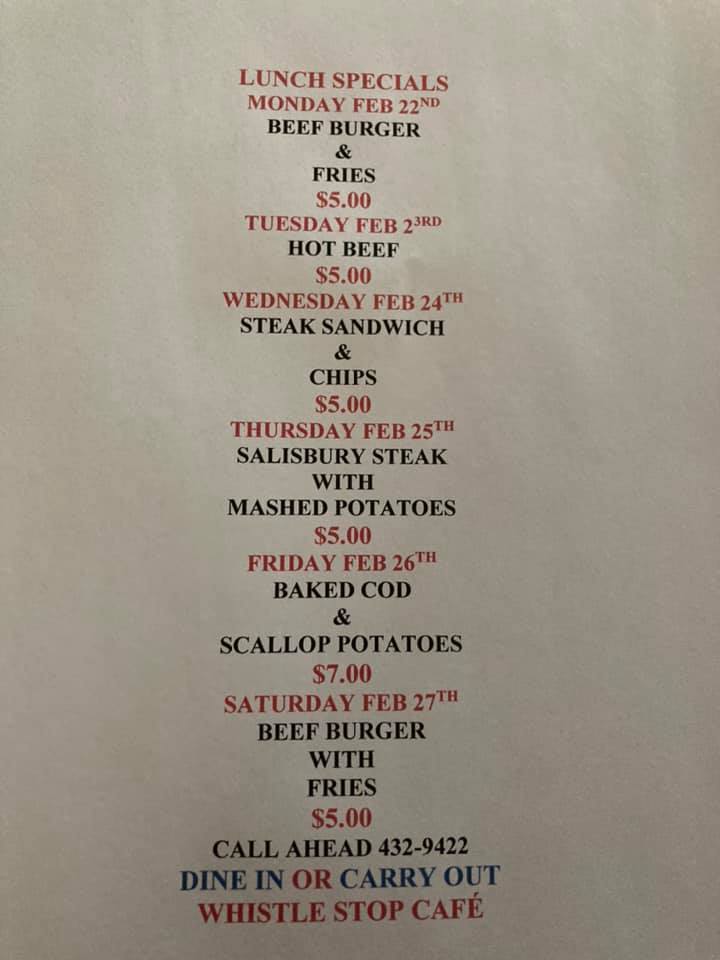 LUNCH SPECIALS
MONDAY FEB 22ND
BEEF BURGER
&
FRIES
$5.00
TUESDAY FEB 23RD
HOT BEEF
$5.00
WEDNESDAY FEB 24TH
STEAK SANDWICH
&
CHIPS
$5.00
THURSDAY FEB 25TH
SALISBURY STEAK
WITH
MASHED POTATOES
$5.00
FRIDAY FEB 26TH
BAKED COD
&
SCALLOP POTATOES
$7.00
SATURDAY FEB 27TH
BEEF BURGER
WITH
FRIES
$5.00
CALL AHEAD 432-9422
DINE IN OR CARRY OUT
WHISTLE STOP CAFÉ